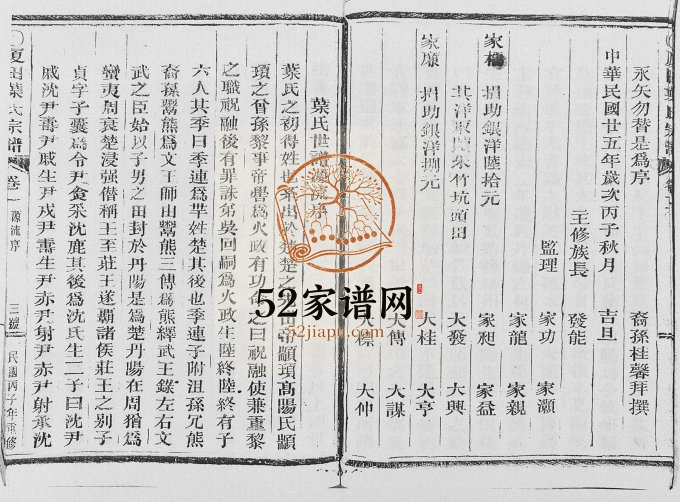 永矢勿替是爲序
中華民國廿五年歲次丙子秋月 吉旦
裔孫桂馨拜撰
主修族長 發能
監理 家功 家灝
家龍 家親
家昶 家益
家楊 捐助銀洋陸拾元 大發 大興
其洋取慶朱竹坑頭田 大桂 大亨
家廉 捐助銀洋捌元 大傳 大謀
大標 大仲
葉氏世譜源流序
葉氏之初得姓也系出於楚楚之先出帝顓頊高陽氏顓
頊之曾孫黎事帝嚳爲火政有功命之曰祝融使兼重黎
之職祝融後有罪誅弟吳回嗣爲火政生陸終陸終有子
六人其季曰季連爲羋姓楚其後也季連子附沮孫穴熊
裔孫鬻熊爲文王師由鬻熊三傳爲熊繹武王錄左右文
武之臣始以子男之田封於丹陽是爲楚丹陽在周猶爲
蠻夷周衰楚浸强僭稱王至莊王遂覇諸侯莊王之别子
貞字子囊爲令尹食采沈鹿其後爲沈氏生二子曰沈尹
戚沈尹壽尹戚生尹戌尹壽生尹赤尹射尹赤尹射承沈
夏田葉氏宗譜 卷一 源流序 三 民國丙子年重修
52家谱网
52jiapu.com